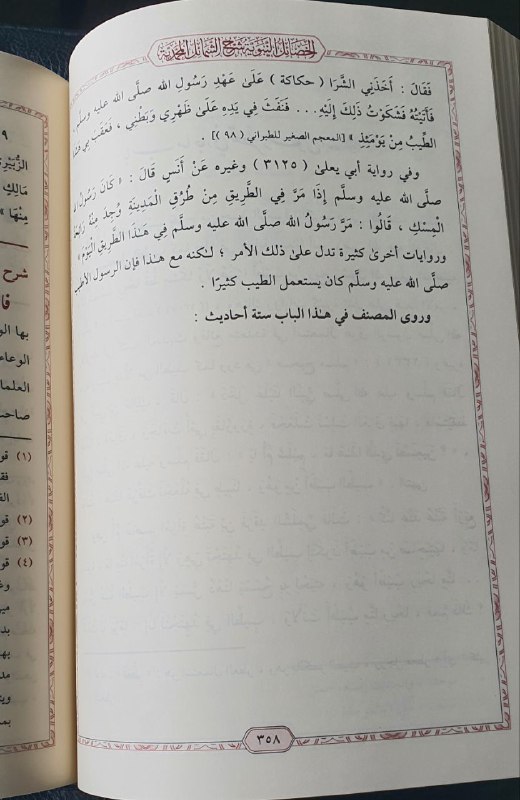 الخصائل النبوية بشرح الشمائل المحمدية
فَقَالَ : أَخَذَنِي الشَّرَا ( حكاكة ) عَلَىٰ عَهْدِ رَسُولِ اللهِ صلَّى الله عليه وسلَّم ،
فَأَتَيْتُهُ فَشَكَوْتُ ذَلِكَ إِلَيْهِ... فَنَفَثَ فِي يَدِهِ عَلَىٰ ظَهْرِي وَبَطْنِي ، فَعَقَبَ بِي
الطِّيبُ مِنْ يَوْمَئِذٍ » [المعجم الصغير للطبراني ( ٩٨ )] .
وفي رواية أبي يعلىٰ ( ٣١٢٥ ) وغيره عَنْ أَنَسٍ قَالَ : « كَانَ رَسُولُ
صلَّى الله عليه وسلَّم إِذَا مَرَّ فِي الطَّرِيقِ مِنْ طُرُقِ الْمَدِينَةِ وُجِدَ مِنْهُ
الْمِسْكِ ، قَالُوا : مَرَّ رَسُولُ اللهِ صلَّى الله عليه وسلَّم فِي هَـٰذَا الطَّرِيقِ الْيَوْمَ »
وروايات أخرىٰ كثيرة تدل علىٰ ذلك الأمر ؛ لـٰكنه مع هـٰذا فإن الرسول الأطيب
صلَّى الله عليه وسلَّم كان يستعمل الطيب كثيرًا .
وروى المصنف في هـٰذا الباب ستة أحاديث :
٣٥٨
٩
الزُّبَيْرِ
مَالِكٍ
مِنْهَا »
شرح
بها الو
الوعاء
العلما
صاحب
(١) قو
فق
(٢) قو
(٣) قو
(٤) قو
وغ
مير
بد
بها
مد
وين
بم